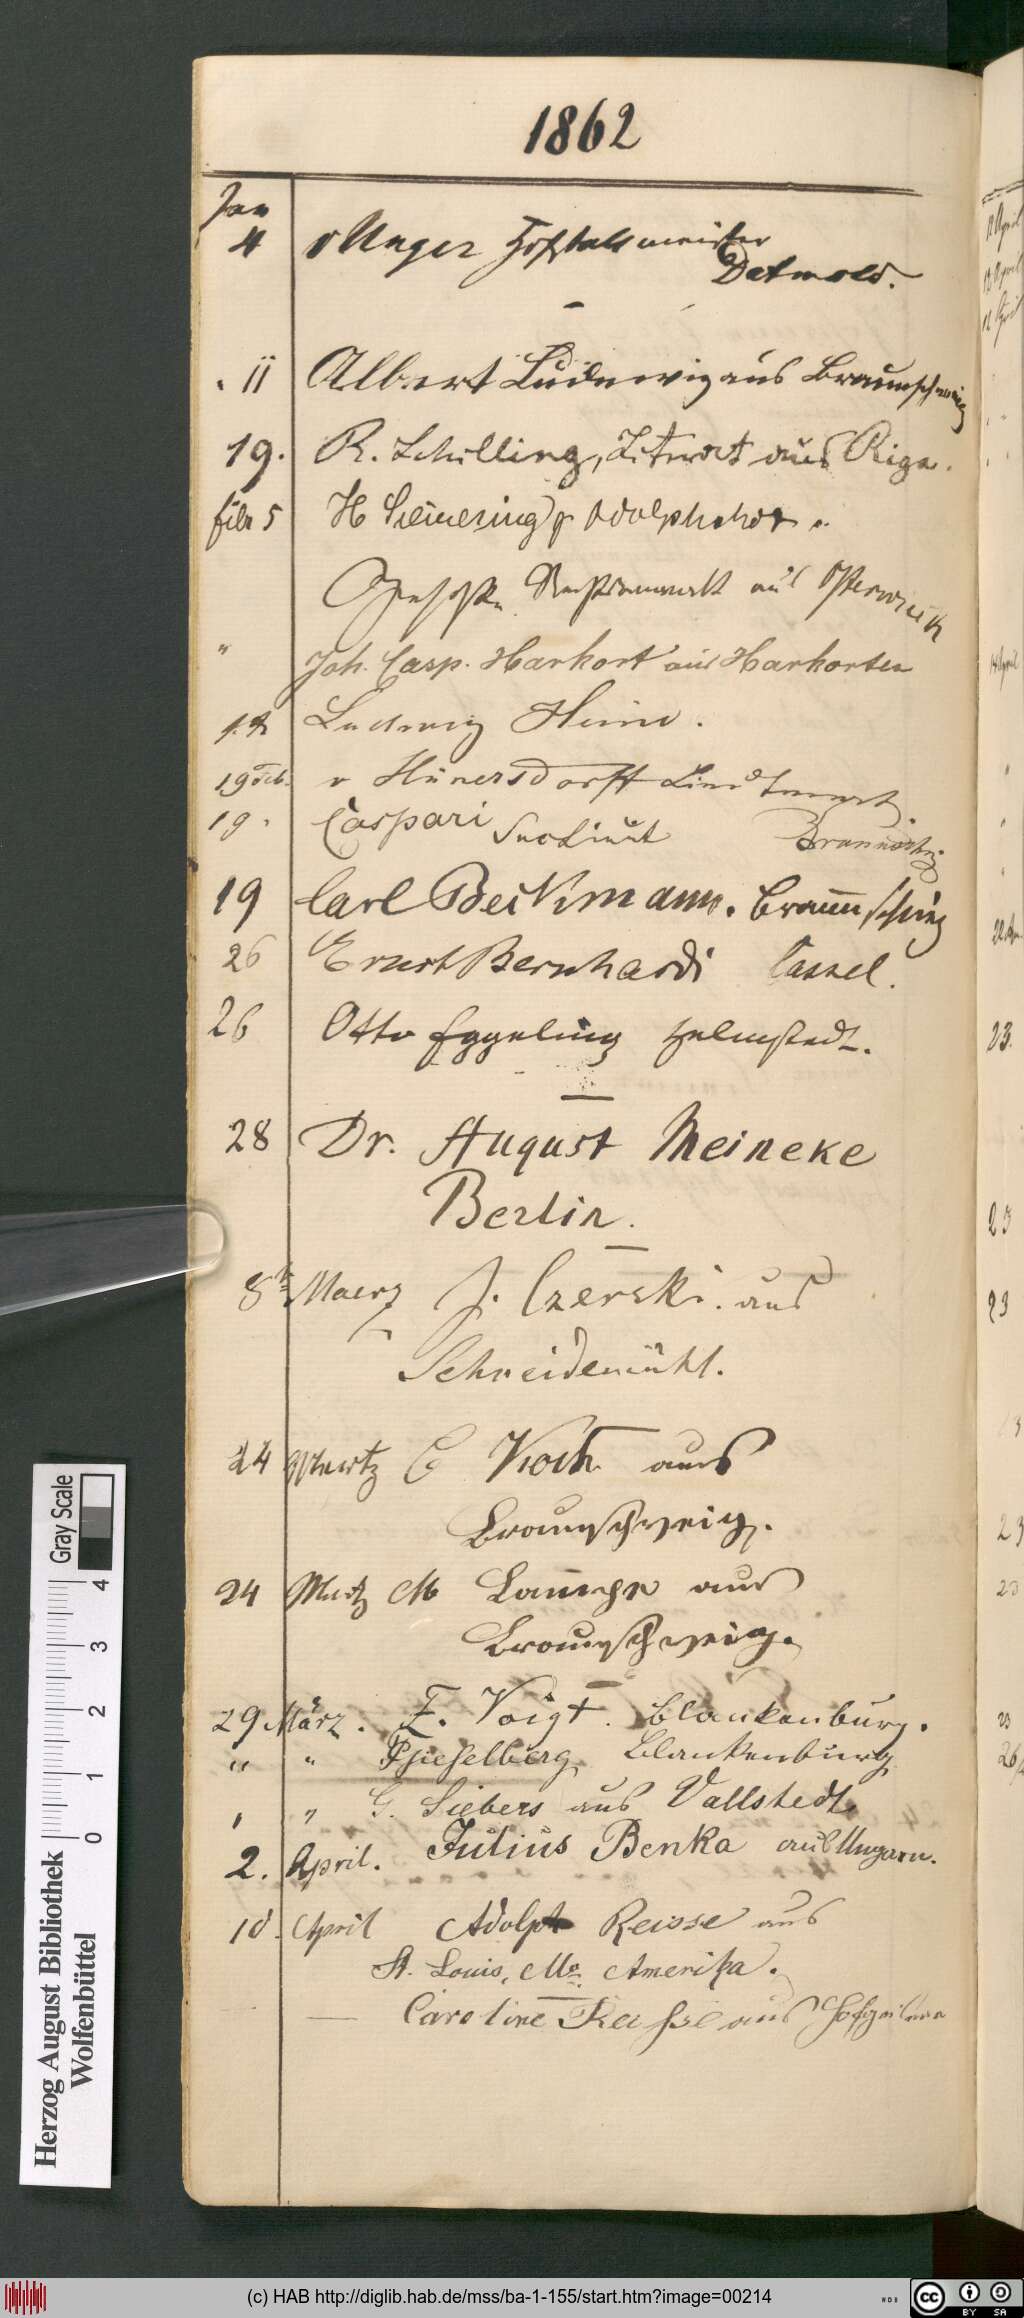 1862
Jan
4 v Unger Hofstallmeister
Detmold.
" 11 Albert Ludewig aus Braunschweig
19. R. Schilling, Literat aus Riga.
febr 5 H
aus Osterwieck
" Joh. Casp. Harkort aus Harkorten
Ludwig
19 Feb. v Hünersdorff Lieutenant
19 " Caspari Braunschwg.
19 Carl Beckmann. Braunschwg
26 Ernst Bernhardi Cassel.
26 Otto Eggeling Helmstedt.
28 Dr. August Meineke
Berlin.
8t Maerz J. Czerski. aus
Schneidemühl.
24 Maertz C Koch aus
Braunschweig.
24 Martz M Lampe aus
Braunschweig.
29 März. F. Voigt. Blankenburg.
" " Blankenburg
" " G. Siebers aus Vallstedt
2. April. Julius Benka aus Ungarn.
10. April Adolph Reisse aus
St. Louis, Mo. Amerika.
— Caroline Reisse aus
Gray Scale
0 1 2 3 4
Herzog August Bibliothek
Wolfenbüttel
11 April
14 April
23.
25
23
23
23
(c) HAB http://diglib.hab.de/mss/ba-1-155/start.htm?image=00214
cc BY SA